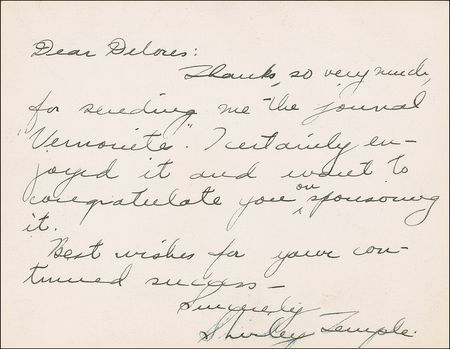 Dear Delores:
Thanks, so very much,
for sending me the journal
"Vernonites". I certainly en-
joyed it and want to
congratulate you on sponsoring
it.
Best wishes for your con-
tinued success —
Sincerely
Shirley Temple.